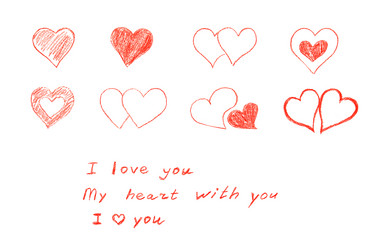 I love you
My heart with you
I ♡ you